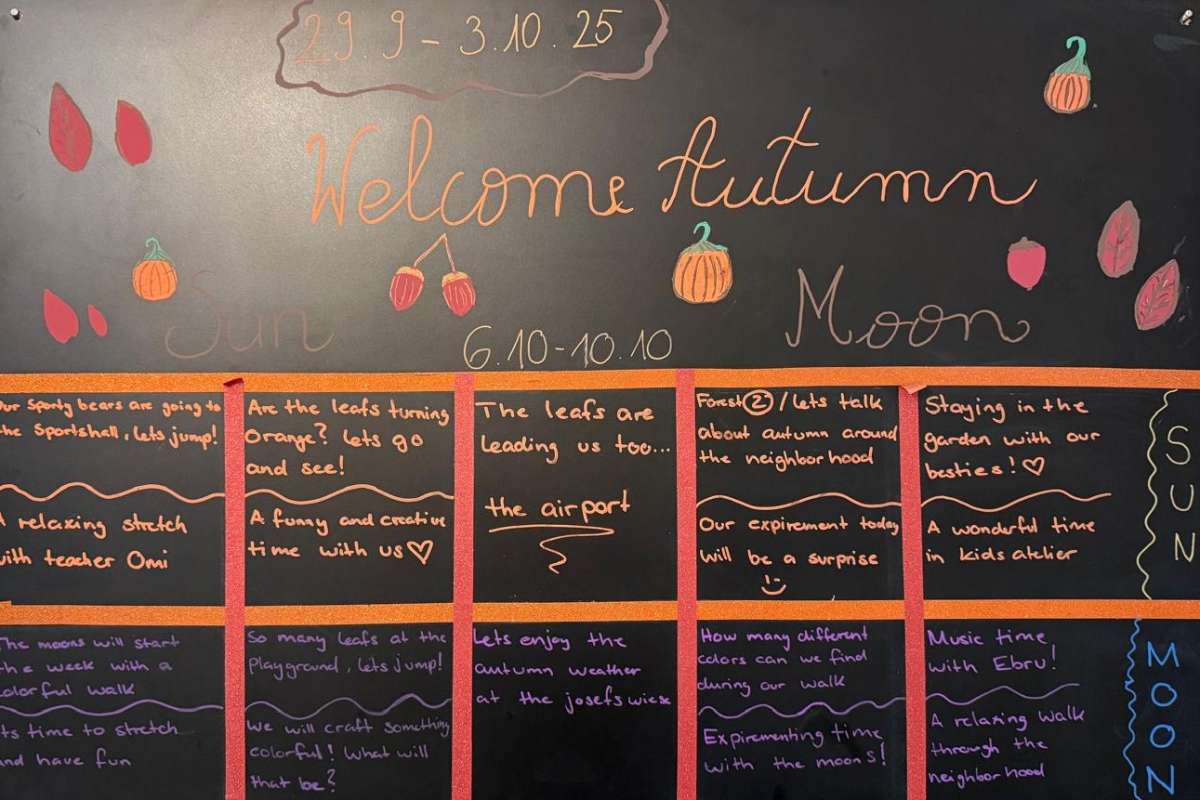 29 9 - 3.10.25
Welcome Autumn
Sun
Moon
6.10-10.10
our sporty bears are going to
the Sportshell, lets jump!
A relaxing stretch
with teacher Omi
Are the leafs turning
orange? lets go
and see!
A funny and creative
time with us♡
The leafs are
leading us too...
the airport
Forest② / lets talk
about autumn around
the neighborhood
Our expirement today
will be a surprise
Staying in the
garden with our
besties! ♡
A wonderful time
in kids atelier
SUN
The moons will start
the week with a
colorful walk
its time to stretch
and have fun
So many leafs at the
playground, lets jump!
we will craft something
colorful! What will
that be?
Lets enjoy the
autumn weather
at the josefswiese
How many different
colors can we find
during our walk
Expirementing time
with the moons!
Music time
with Ebru!
A relaxing walk
through the
neighborhood
MOON